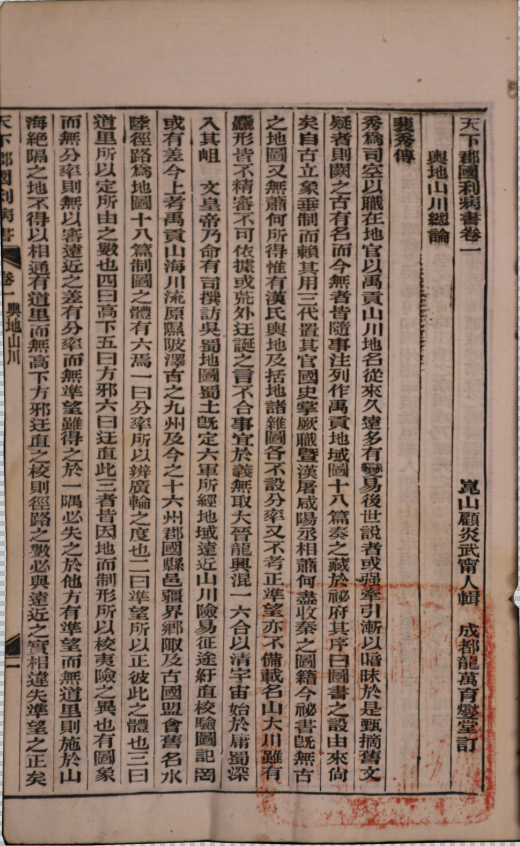 天下郡國利病書卷一
崑山顧炎武甯人輯　成都龍萬育燮堂訂
輿地山川總論
裴秀傳
秀爲司空以職在地官以禹貢山川地名從來久遠多有變易後世說者或强牽引漸以暗昧於是甄摘舊文
疑者則闕之古有名而今無者皆隨事注列作禹貢地域圖十八篇奏之藏於祕府其序曰圖書之設由來尙
矣自古立象垂制而賴其用三代置其官國史掌厥職暨漢屠咸陽丞相蕭何盡收秦之圖籍今祕書旣無古
之地圖又無蕭何所得惟有漢氏輿地及括地諸雜圖各不設分率又不考正準望亦不備載名山大川雖有
麤形皆不精審不可依據或荒外迂誕之言不合事宜於義無取大晉龍興混一六合以淸宇宙始於庸蜀深
入其岨　文皇帝乃命有司撰訪吳蜀地圖蜀土旣定六軍所經地域遠近山川險易征途紆直校驗圖記罔
或有差今上考禹貢山海川流原隰陂澤古之九州及今之十六州郡國縣邑疆界鄕陬及古國盟會舊名水
陸徑路爲地圖十八篇制圖之體有六焉一曰分率所以辨廣輪之度也二曰準望所以正彼此之體也三曰
道里所以定所由之數也四曰高下五曰方邪六曰迂直此三者皆因地而制形所以校夷險之異也有圖象
而無分率則無以審遠近之差有分率而無準望雖得之於一隅必失之於他方有準望而無道里則施於山
海絕隔之地不得以相通有道里而無高下方邪迂直之校則徑路之數必與遠近之實相違失準望之正矣
天下郡國利病書
卷一
輿地山川